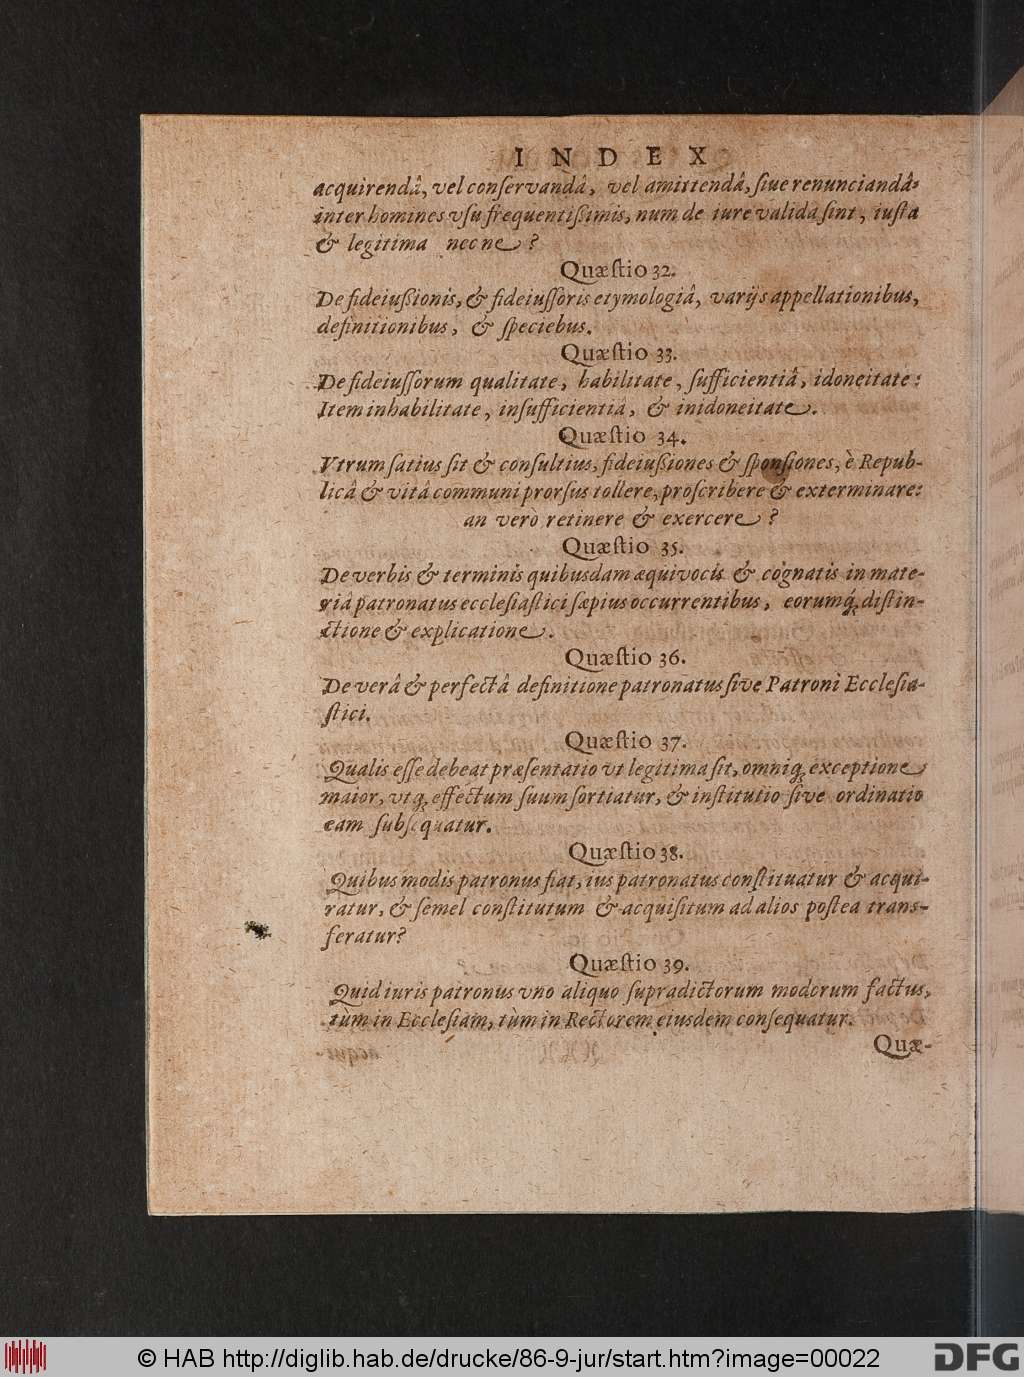 INDEX
acquirendâ, vel conſervandâ, vel amittendâ, ſiue renunciandâ:
inter homines vſu frequentißimis, num de iure valida ſint, iuſta
& legitima nec ne?
Quæſtio 32.
De fideiußionis, & fideiuſſoris etymologiâ, varijs appellationibus,
definitionibus, & ſpeciebus.
Quæſtio 33.
De fideiuſſorum qualitate, habilitate, ſufficientiâ, idoneitate:
Item inhabilitate, inſufficientiâ, & inidoneitate.
Quæſtio 34.
Vtrum ſatius ſit & conſultius, fideiußiones & ſponſiones, è Repub-
licâ & vitâ communi prorſus tollere, proſcribere & exterminare:
an verò retinere & exercere?
Quæſtio 35.
De verbis & terminis quibusdam æquivocis & cognatis in mate-
riâ patronatus eccleſiaſtici ſæpius occurrentibus, eorumq́; diſtin-
ctione & explicatione.
Quæſtio 36.
De verâ & perfectâ definitione patronatus ſive Patroni Eccleſia-
ſtici.
Quæſtio 37.
Qualis eſſe debeat præſentatio vt legitima ſit, omniq; exceptione
maior, vtq; effectum ſuum ſortiatur, & inſtitutio ſive ordinatio
eam ſubſequatur.
Quæſtio 38.
Quibus modis patronus fiat, ius patronatus conſtituatur & acqui-
ratur, & ſemel conſtitutum & acquiſitum ad alios poſtea trans-
feratur?
Quæſtio 39.
Quid iuris patronus vno aliquo ſupradictorum modorum factus,
tùm in Eccleſiam, tùm in Rectorem eiusdem conſequatur.
Quæ-
© HAB http://diglib.hab.de/drucke/86-9-jur/start.htm?image=00022
DFG